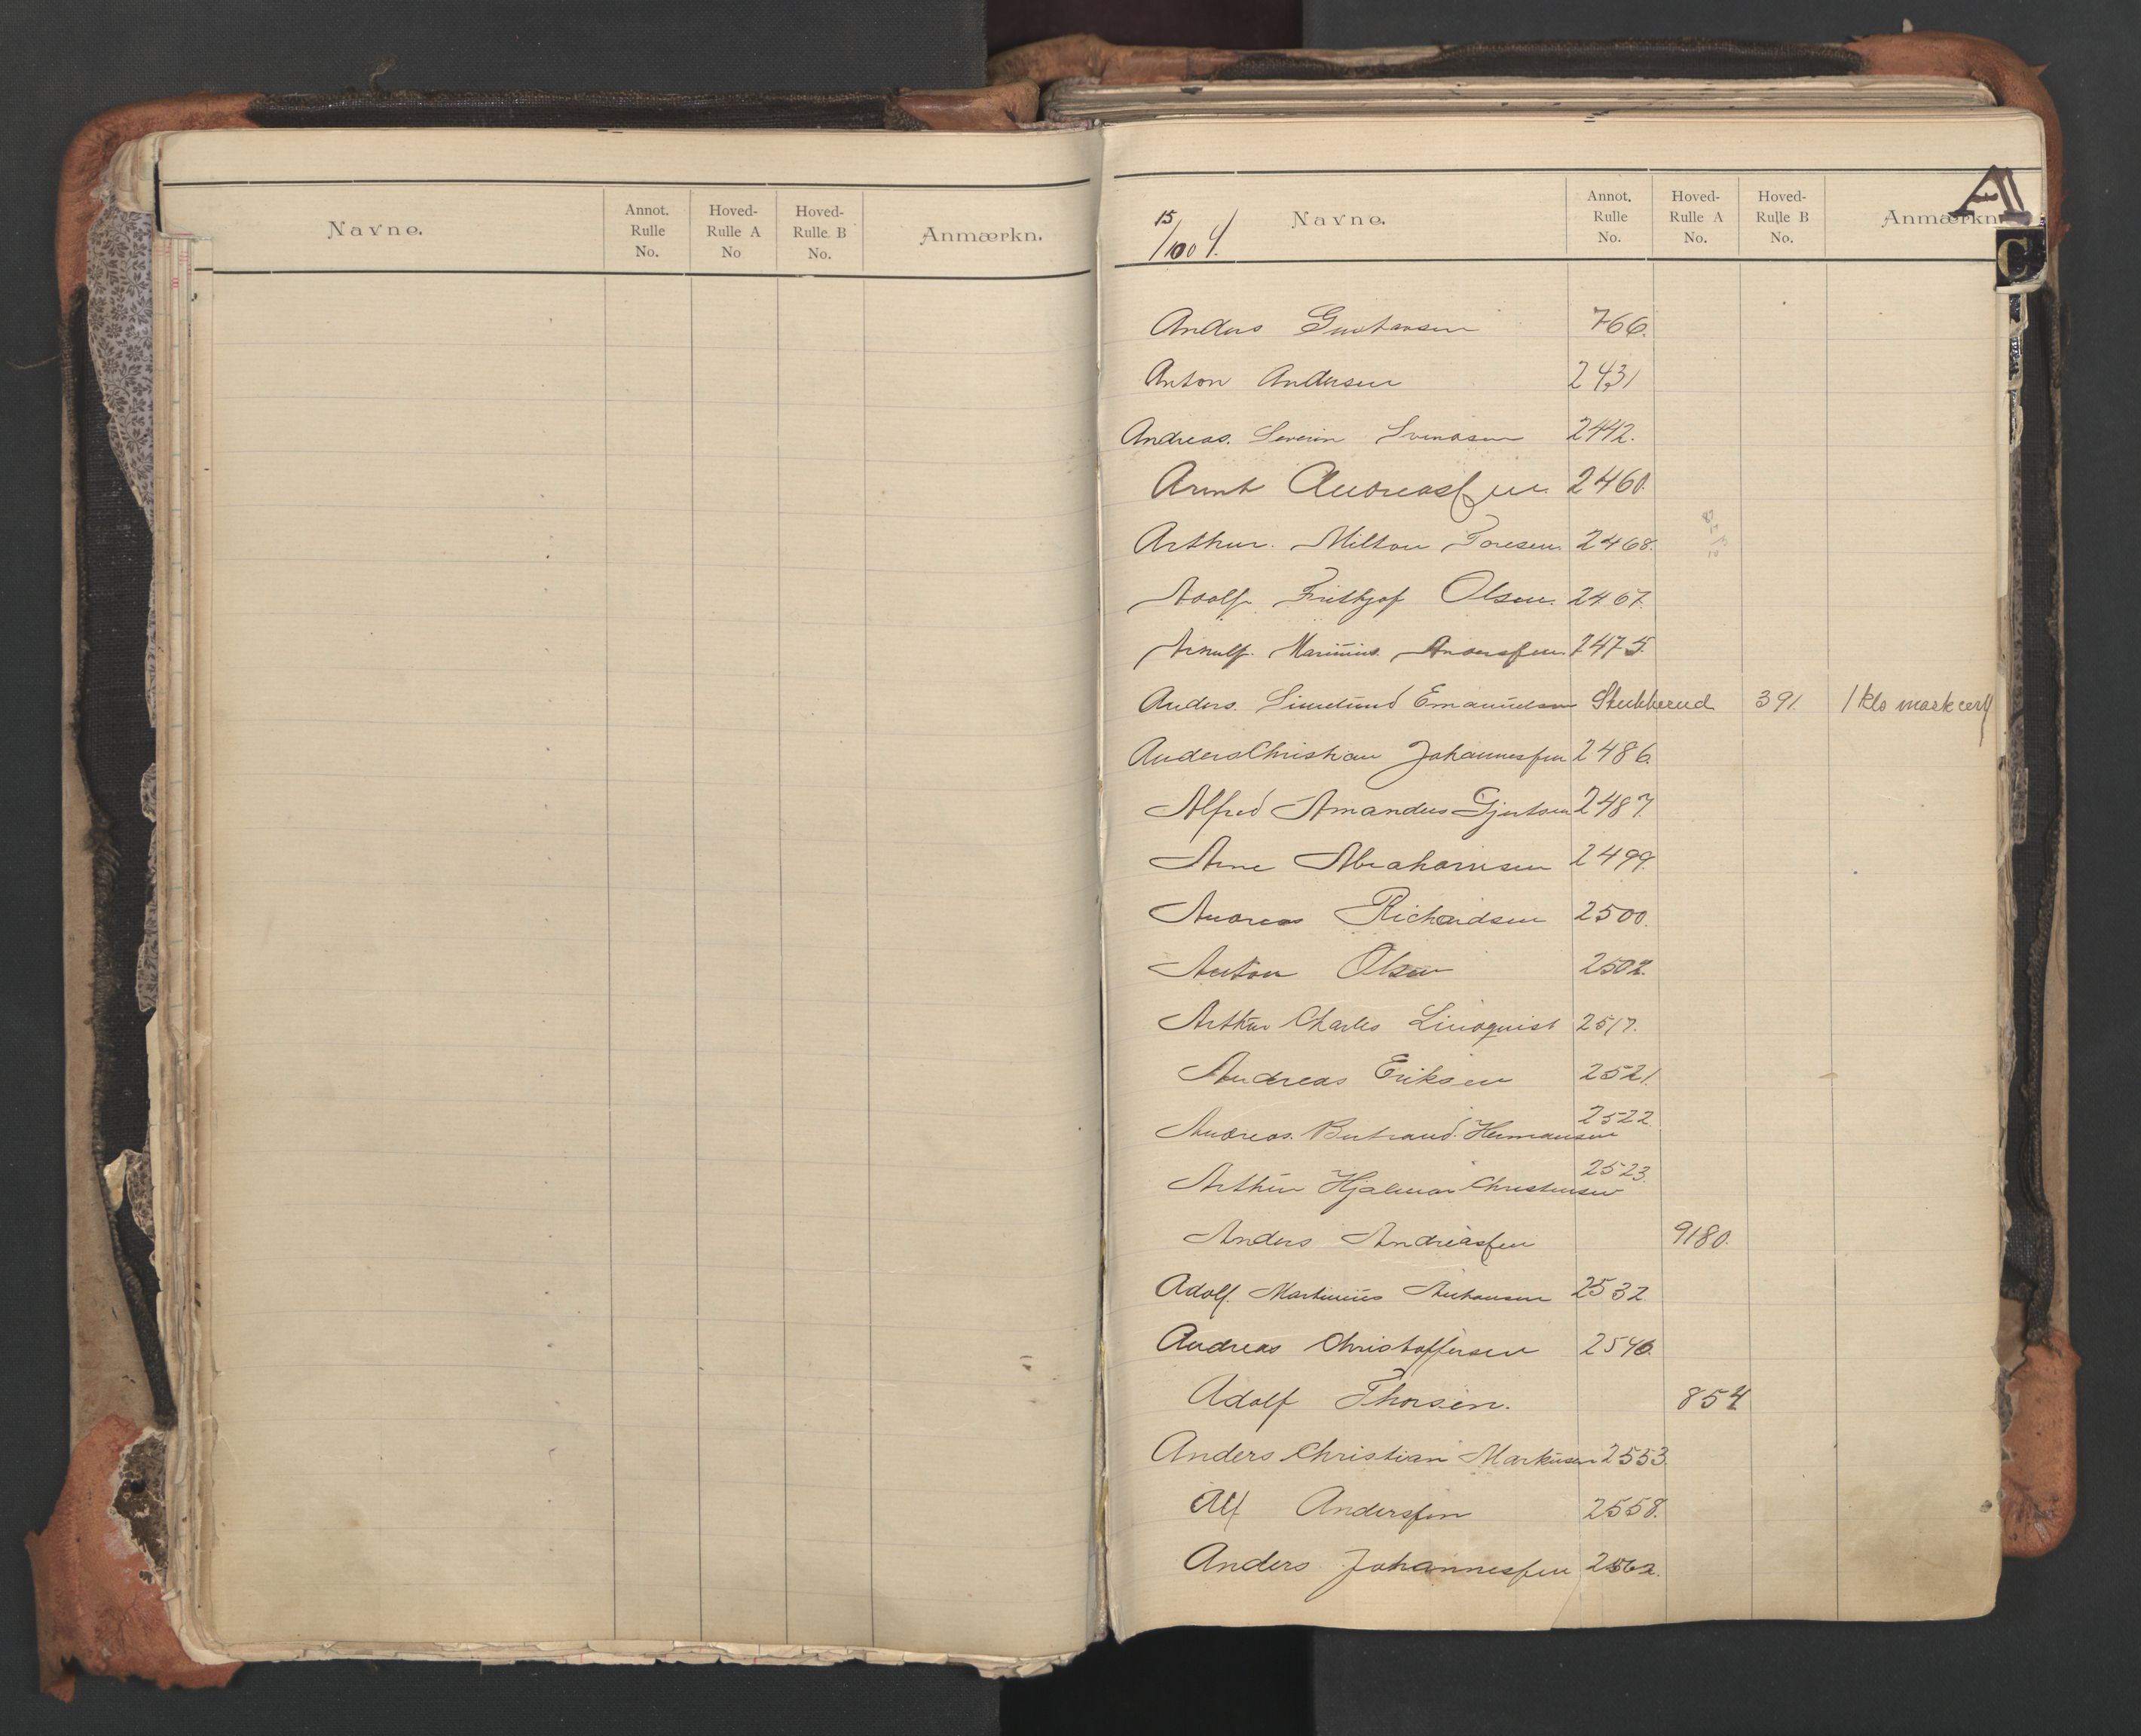 Navne.
Annot. Rulle No.
Hoved- Rulle A No
Hoved- Rulle B No.
Anmærkn.
15/100 4.
Navne.
Annot. Rulle No.
Hoved- Rulle A No.
Hoved- Rulle B No.
Anmærkn
A
C
Anders Gustavsen 766.
Anton Andersen 2431
Andreas. Severin Svendsen 2442.
Arent Andreasfen. 2460.
Arthur. Milton Toresen 2468.
Adolf. Frithjof Olsen. 2467.
Arnulf. Marinius. Andersfen 2475.
Anders. Emanuelsen Stubberud 391. 1 kls mask cert
Anders Christian Johannesfen 2486.
Alfred Amandus Gjertsen 2487.
Arne Abrahamsen 2499.
Andreas Richardsen 2500.
Anton Olsen 2502.
Arthur Charles Lindquist 2517.
Andreas Eriksen 2521.
Andreas. Bertrand. Hermansen 2522.
Arthur Hjalmar Christensen 2523.
Anders Andreasfen 9180.
Adolf. Martinius 2532.
Andreas Christoffersen 2546.
Adolf Thorsen. 854
Anders Christian Markusen 2553.
Alf Andersfen 2558.
Anders Johannesfen 2562.